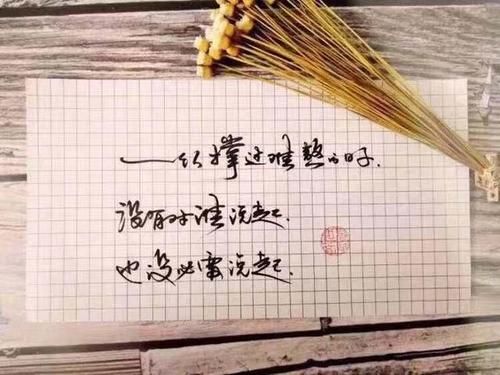 一撑过难熬的日子.
没有对谁说起.
也没必需说起.